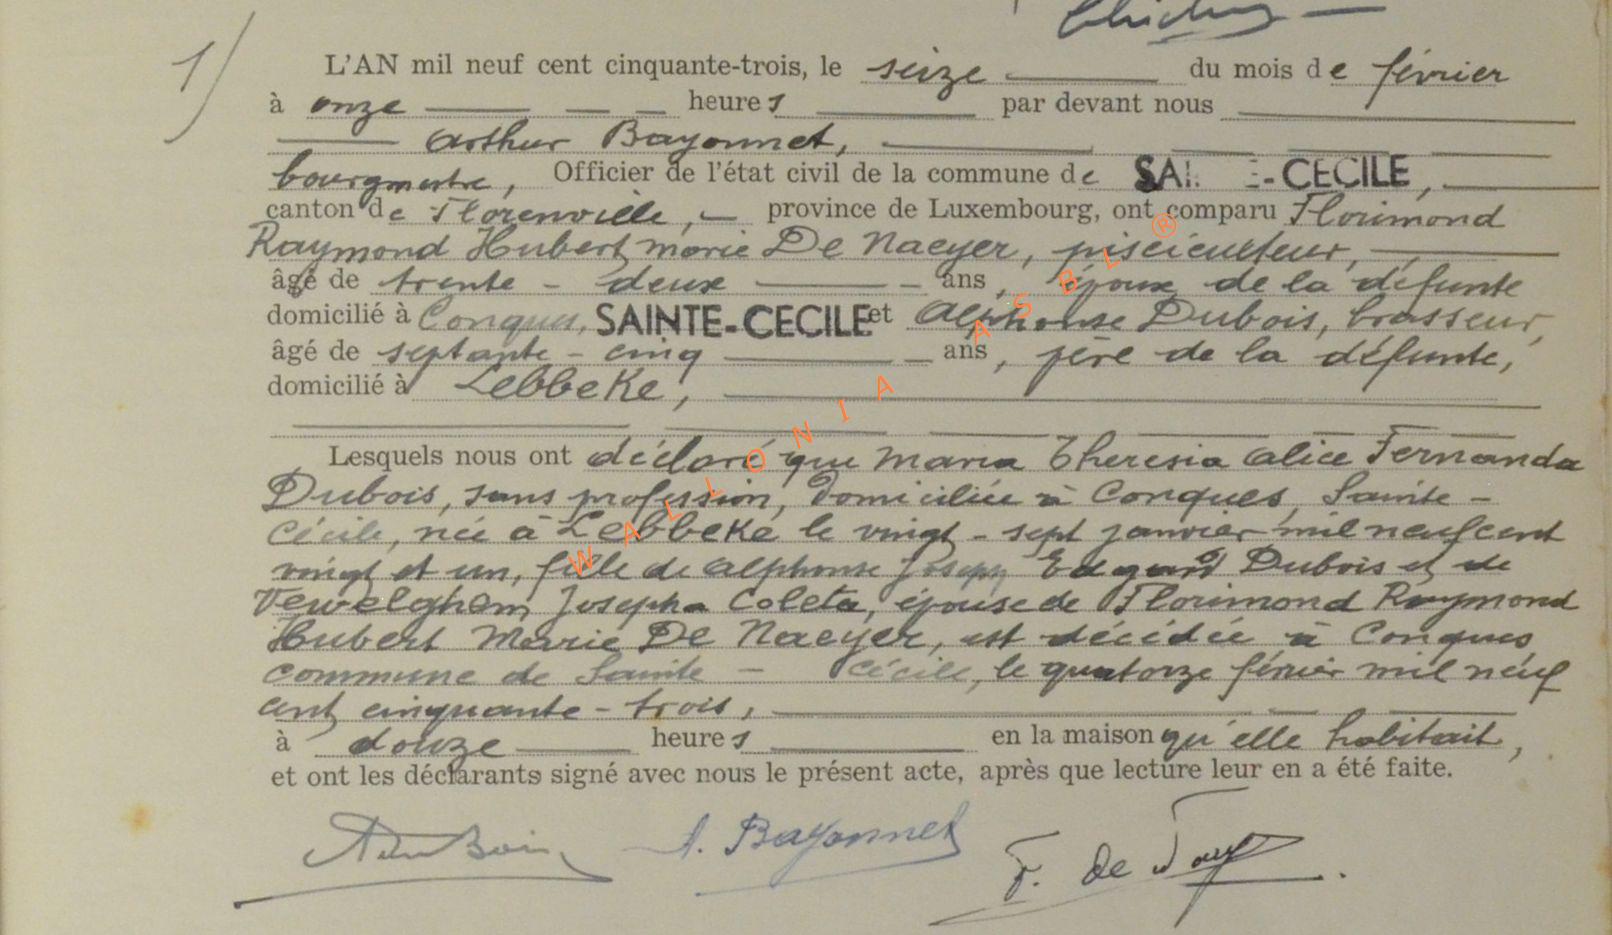 1/
L'AN mil neuf cent cinquante-trois, le seize du mois de février
à onze heures par devant nous
Arthur Bayonnet,
bourgmestre, Officier de l'état civil de la commune de SAI - CECILE,
canton de Florenville, province de Luxembourg, ont comparu Florimond
Raymond Hubert Marie De Naeyer, pisciculteur,
âgé de trente - deux ans, époux de la défunte
domicilié à Conques, SAINTE-CECILE et Alphonse Dubois, brasseur,
âgé de septante - cinq ans, père de la défunte,
domicilié à Lebbeke,
Lesquels nous ont déclaré que Maria Theresia Alice Fernanda
Dubois, sans profession, domiciliée à Conques, Sainte -
Cécile, née à Lebbeke le vingt - sept janvier mil neuf cent
vingt et un, fille de Alphonse Joseph Edgard Dubois et de
Vewelghem Josepha Coleta, épouse de Florimond Raymond
Hubert Marie De Naeyer, est décédée à Conques,
commune de Sainte - Cécile, le quatorze février mil neuf
cent cinquante - trois,
à douze heures en la maison qu'elle habitait,
et ont les déclarants signé avec nous le présent acte, après que lecture leur en a été faite.
A. Bayonnet
WALLONIA ASBL ®